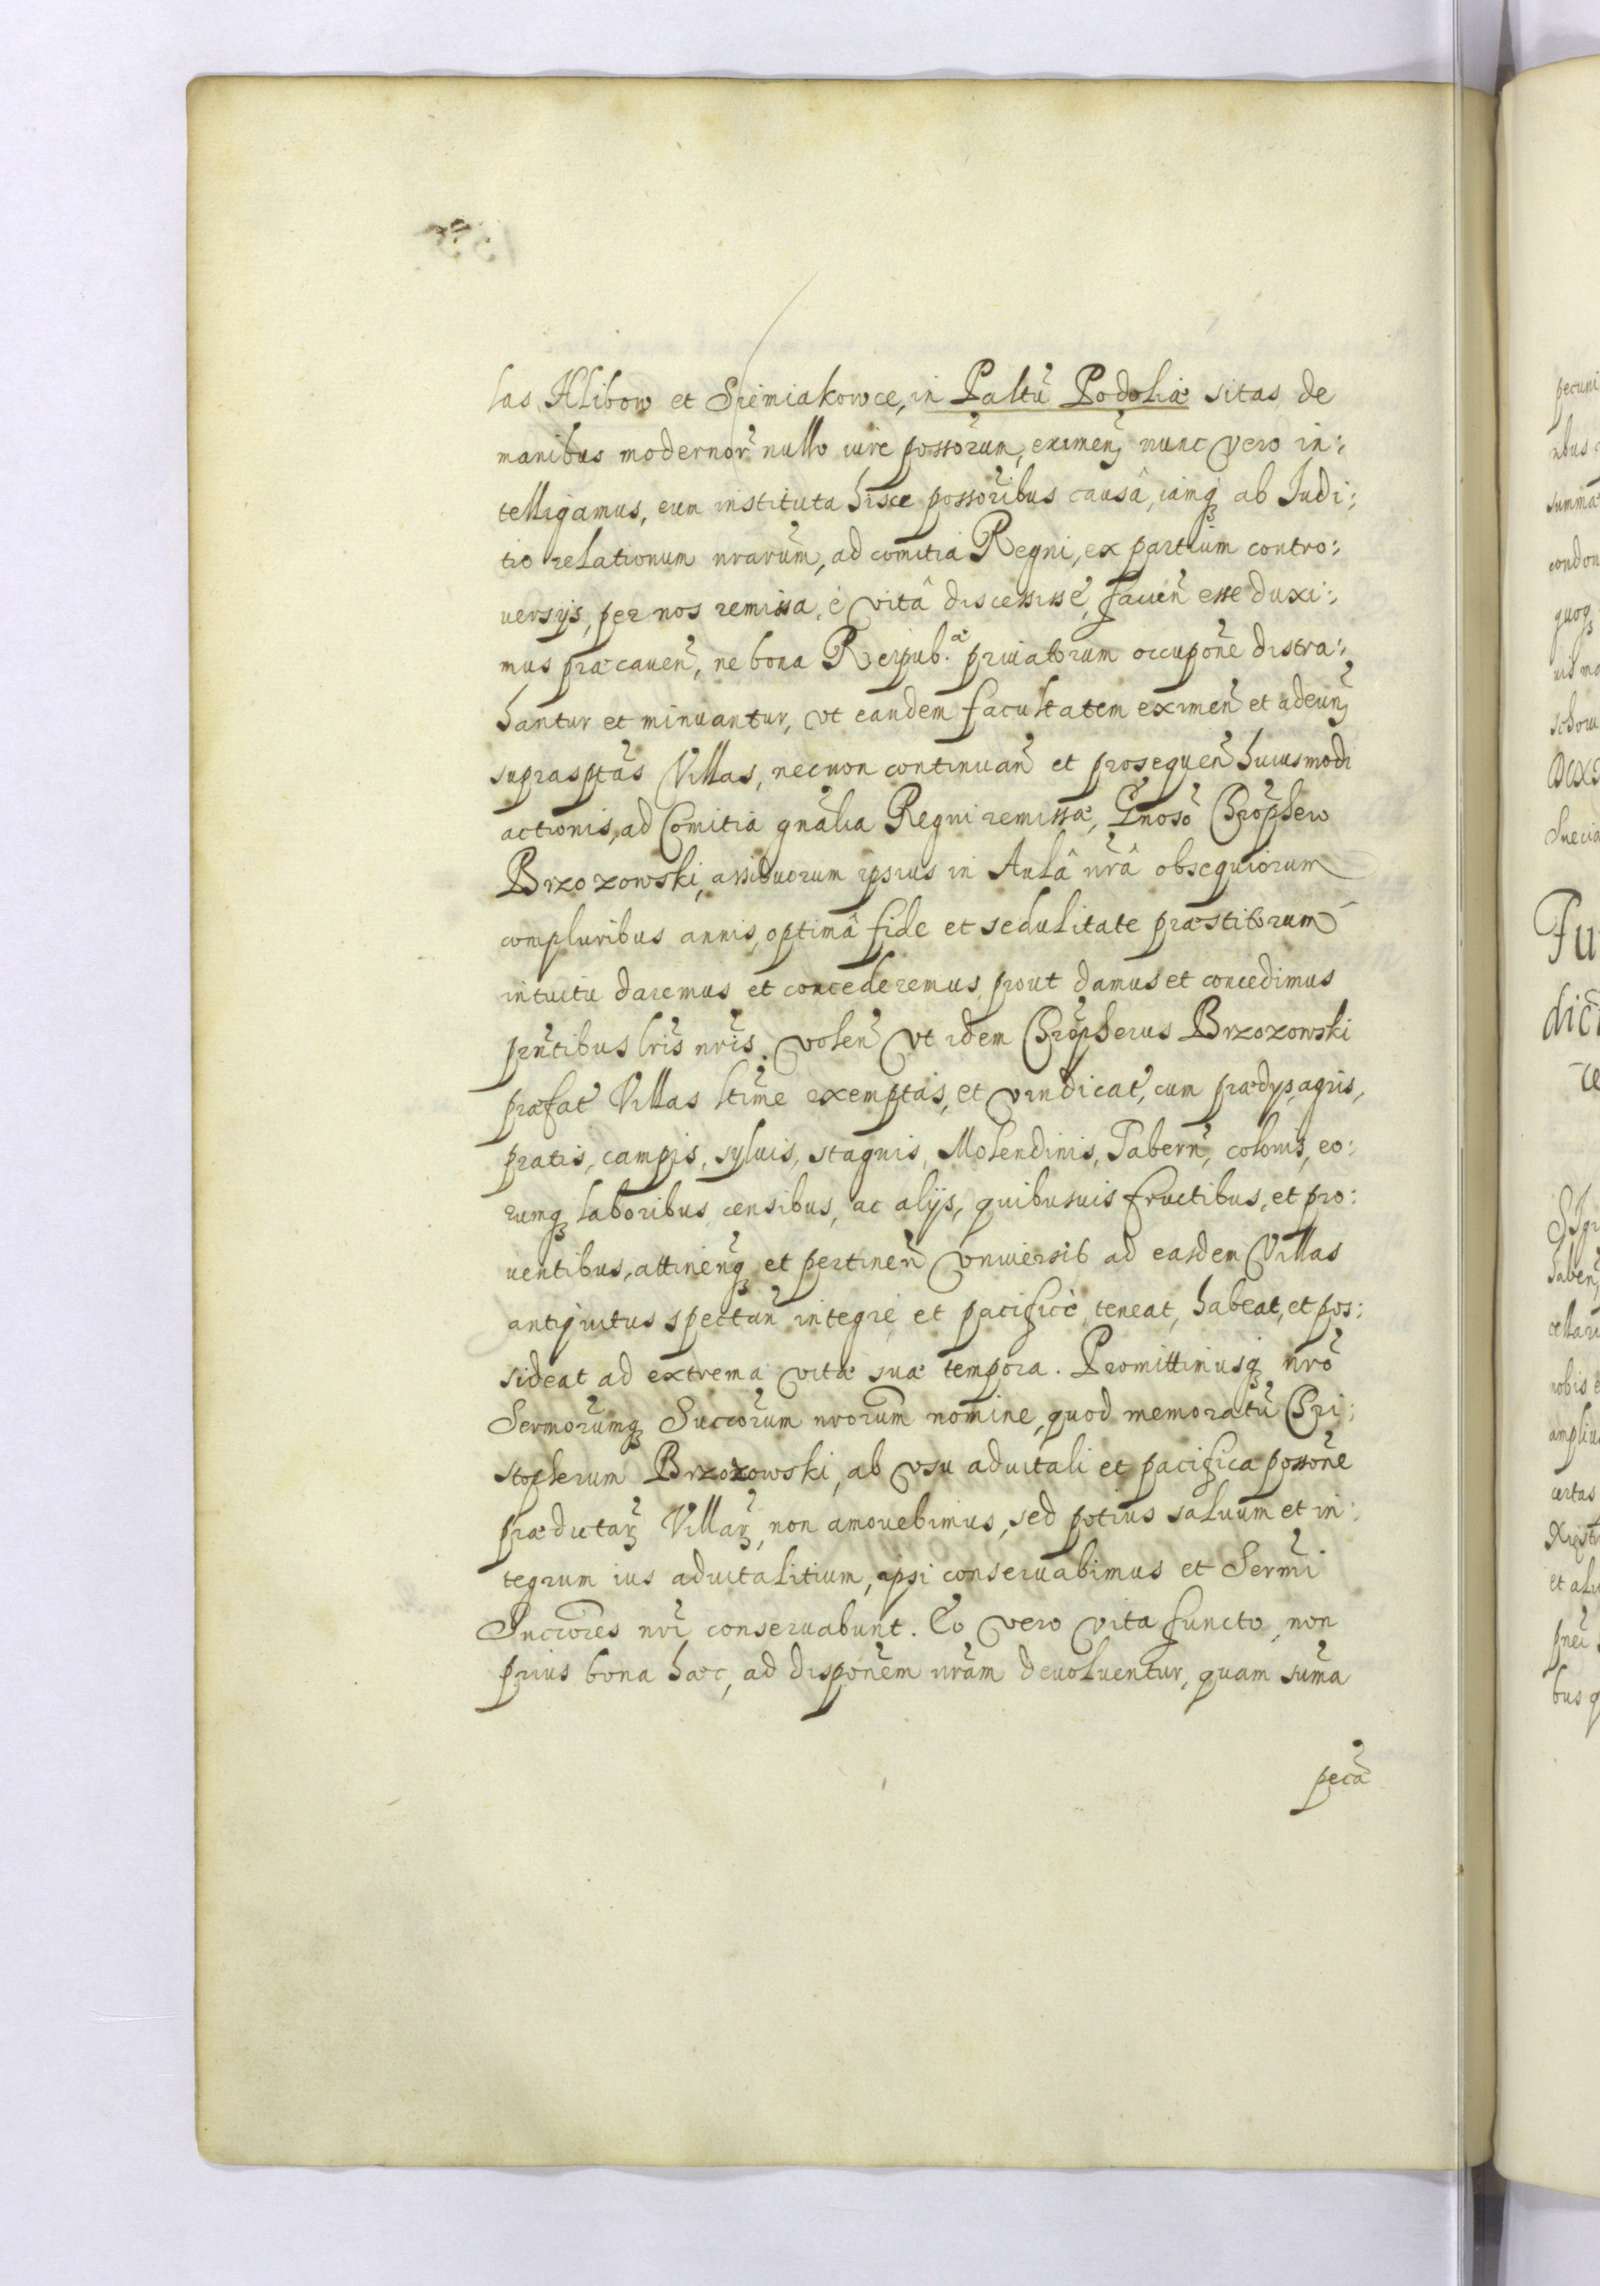 las Hlibow et Siemiakowce, in Paltũ Podoliæ sitas de
manibus modernor̃ nullo iure possor̃um, eximen̄, nunc vero in:
telligamus, eum instituta hisce possor̃ibus causâ, iamq̃ ab Judi:
tio relationum nrar̃um, ad comitia Regni, ex partium contro:
versijs, per nos remissa, è vitâ discessisse, facien̄ esse duxi:
mus præcaven̄, ne bona Reipub.æ priuatorum occupon̄e distra:
hantur et minuantur, vt eandem facultatem eximen̄ et adeun̄
supraspt̃as Villas, necnon continuan̄ et prosequen̄ huiusmodi
actionis, ad Comitia gn̄alia Regni remissæ, Gn̄oso Chrõphero
Brzozowski, assiduorum ipsius in Aulâ nr̃â obsequiorum
compluribus annis, optimâ fide et sedulitate præstitorum
intuitu daremus et concederemus prout damus et concedimus
prñtibus lr̃is nr̃is. volen̄ vt idem Chrõpherus Brzozowski
præfat̃ Villas ltĩme exemptas, et vindicat̃, cum prædijs, agris,
pratis, campis, syluis, stagnis, Molendinis, Tabern̄, colonis, eo:
rumq̃ laboribus, censibus, ac alijs, quibusuis fructibus, et pro:
uentibus, attinen̄q̃ et pertinen̄ vniuersis ad easdem Villas
antiquitus spectan̄ integrè, et pacificè, teneat, habeat, et pos:
sideat ad extrema vitæ suæ tempora. Promittimusq̃ nr̃o
Sermor̃umq̃ Succor̃um nror̃um nomine, quod memoratũ Chri:
stopherum Brzozowski, ab vsu aduitali et pacifica posson̄e
prædictar̃ Villar̃, non amouebimus, sed potius saluum et in:
tegrum ius aduitalitium, ipsi conseruabimus et Serm̃i
Succores nr̃i conseruabunt. Eo vero vita functo, non
prius bona hæc, ad dispon̄em nr̃am deuoluentur, quam sum̃a
pecũ